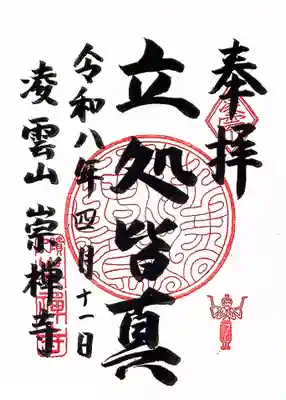 奉拝
立処皆真
令和八年四月十一日
凌雲山崇禅寺